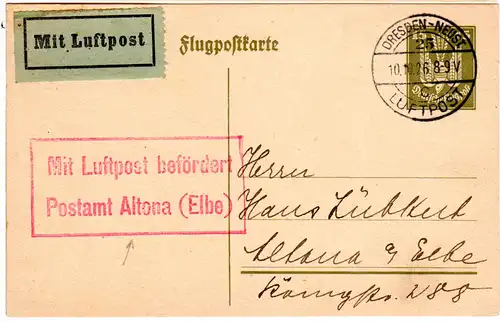 Mit Luftpost
Flugpostkarte
DRESDEN-NEUST.
25
10.10.26.8-9V
LUFTPOST
Mit Luftpost befördert
Postamt Altona (Elbe)
Herrn
Hans Lübkert
Altona a/ Elbe
Königstr. 288